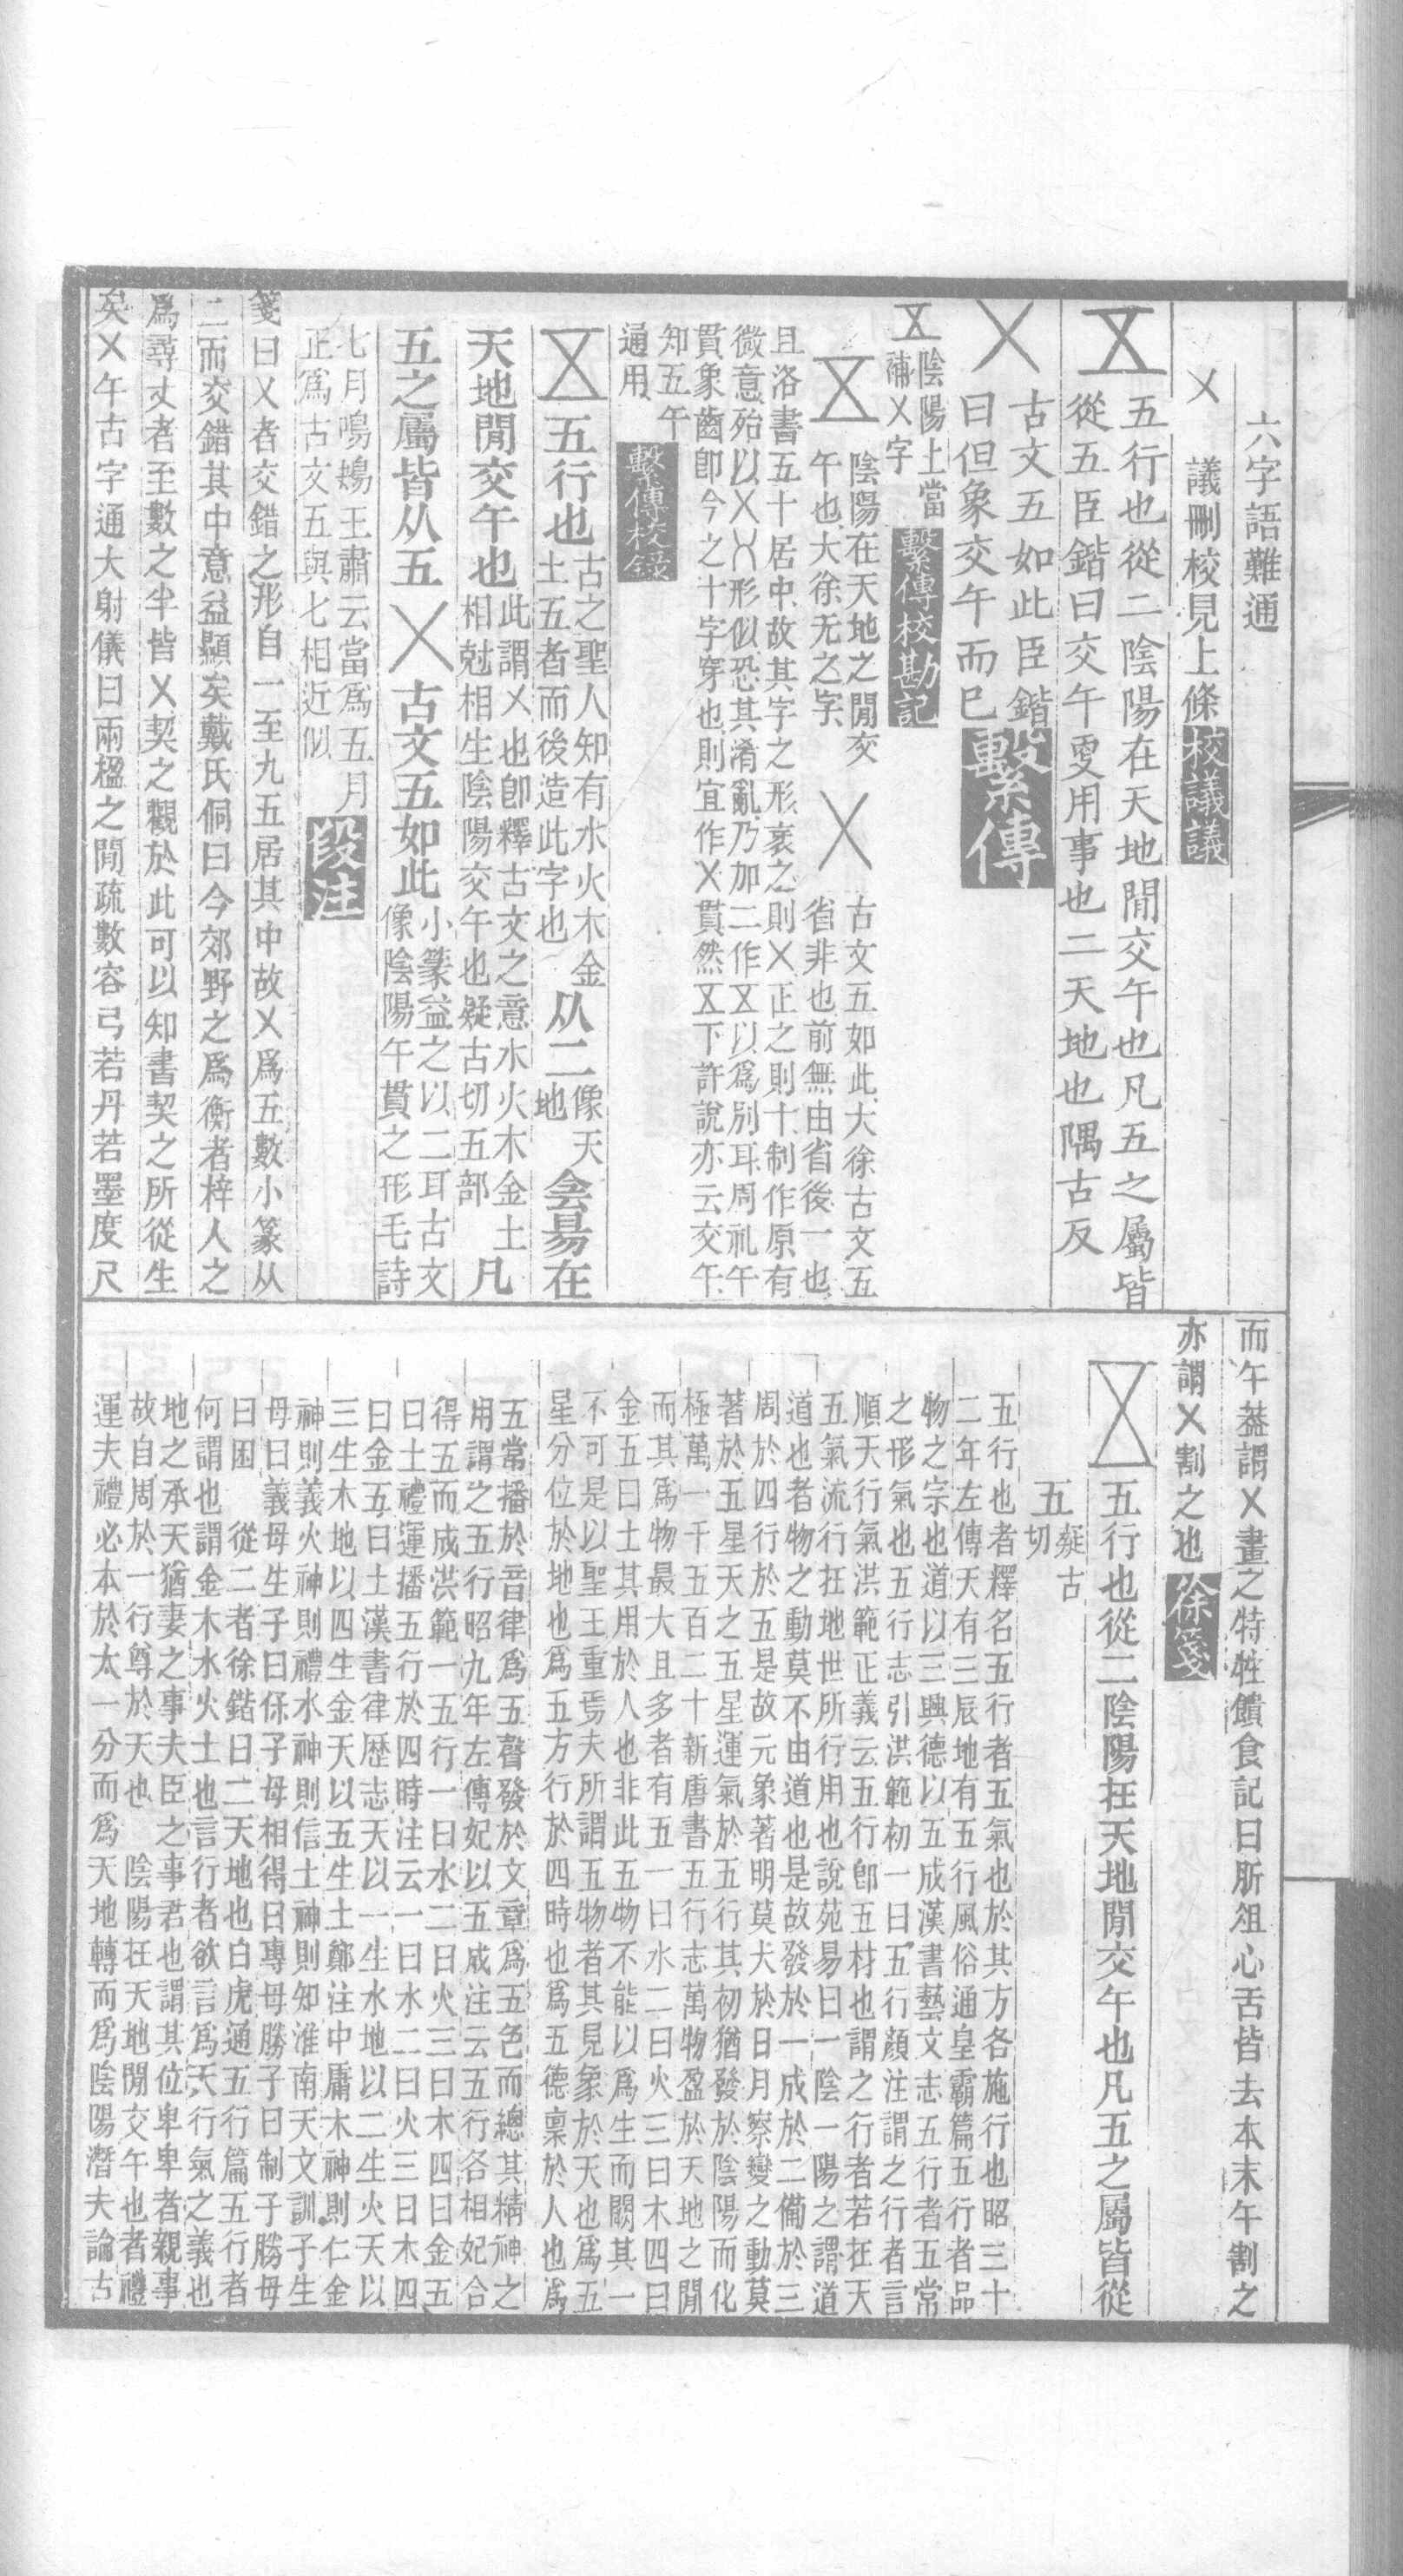 六字語難通
㐅　議刪校見上條校議議
五　五行也從二陰陽在天地閒交午也凡五之屬皆
從五臣鍇曰交午更用事也二天地也隅古反
㐅　古文五如此臣鍇
曰但象交午而已繫傳
五　陰陽上當
補㐅字　繫傳校勘記
五　陰陽在天地之閒交
午也大徐无之字
㐅　古文五如此大徐古文五
省非也前無由省後一也
且洛書五十居中故其字之形衺之則㐅正之則十制作原有
微意殆以㐅乂形似恐其淆亂乃加二作五以爲別耳周礼午
貫象齒卽今之十字穿也則宜作㐅貫然五下許說亦云交午
知五午
通用　繫傳校錄
五　五行也
古之聖人知有水火木金
土五者而後造此字也
从二
像天
地
侌昜在
天地閒交午也
此謂㐅也卽釋古文之意水火木金土
相尅相生陰陽交午也疑古切五部
凡
五之屬皆从五　㐅　古文五如此
小篆益之以二耳古文
像陰陽午貫之形毛詩
七月鳴鵙王肅云當爲五月
正爲古文五與七相近似　段注
箋曰㐅者交錯之形自一至九五居其中故㐅爲五數小篆从
二而交錯其中意益顯矣戴氏侗曰今郊野之爲衡者梓人之
爲尋丈者至數之半皆㐅契之觀於此可以知書契之所從生
矣㐅午古字通大射儀曰兩楹之閒疏數容弓若丹若墨度尺
而午葢謂㐅畫之特牲饋食記曰肵俎心舌皆去本末午割之
亦謂㐅割之也　徐箋
五　五行也從二陰陽在天地閒交午也凡五之屬皆從
五　疑古
切
五行也者釋名五行者五氣也於其方各施行也昭三十
二年左傳天有三辰地有五行風俗通皇霸篇五行者品
物之宗也道以三興德以五成漢書藝文志五行者五常
之形氣也五行志引洪範初一曰五行顔注謂之行者言
順天行氣洪範正義云五行卽五材也謂之行者若在天
五氣流行在地世所行用也說苑易曰一陰一陽之謂道
道也者物之動莫不由道也是故發於一成於二備於三
周於四行於五是故元象著明莫大於日月察變之動莫
著於五星天之五星運氣於五行其初猶發於陰陽而化
極萬一千五百二十新唐書五行志萬物盈於天地之閒
而其爲物最大且多者有五一曰水二曰火三曰木四曰
金五曰土其用於人也非此五物不能以爲生而闕其一
不可是以聖王重焉夫所謂五物者其見象於天也爲五
星分位於地也爲五方行於四時也爲五德稟於人也爲
五常播於音律爲五聲發於文章爲五色而總其精神之
用謂之五行昭九年左傳妃以五成注云五行各相妃合
得五而成洪範一五行一曰水二曰火三曰木四曰金五
曰土禮運播五行於四時注云一曰水二曰火三曰木四
曰金五曰土漢書律歷志天以一生水地以二生火天以
三生木地以四生金天以五生土鄭注中庸木神則仁金
神則義火神則禮水神則信土神則知淮南天文訓子生
母曰義母生子曰保子母相得曰專母勝子曰制子勝母
曰困　從二者徐鍇曰二天地也白虎通五行篇五行者
何謂也謂金木水火土也言行者欲言爲天行氣之義也
地之承天猶妻之事夫臣之事君也謂其位卑卑者親事
故自周於一行尊於天也　陰陽在天地閒交午也者禮
運夫禮必本於太一分而爲天地轉而爲陰陽潛夫論古